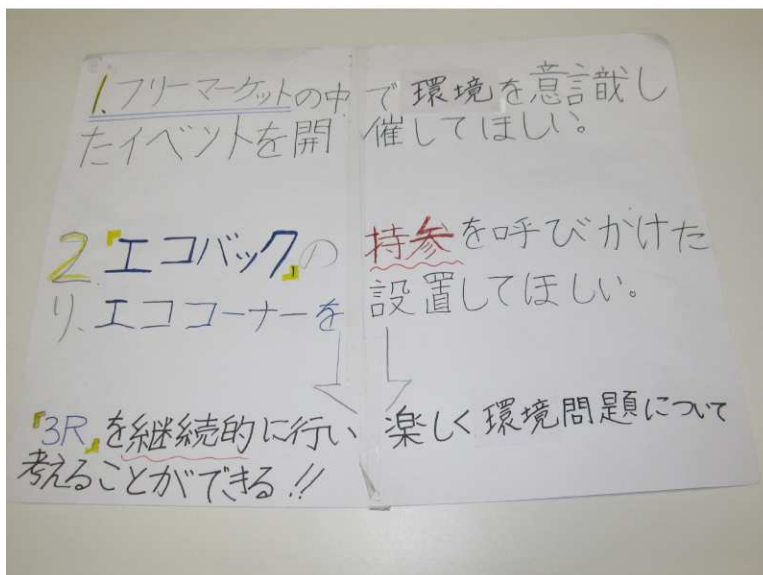 1.フリーマーケットの中で環境を意識し
たイベントを開催してほしい。
2.『エコバック』の持参を呼びかけた
り、エココーナーを設置してほしい。
『3R』を継続的に行い楽しく環境問題について
考えることができる!!